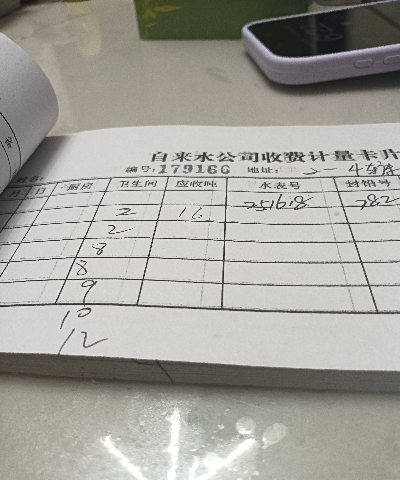 自来水公司收费计量卡片
编号:179166 地址: 2-4
月 日 厨房 卫生间 应收吨 水表号 封铅号
2 16 251618 282
2
8
8
9
10
12